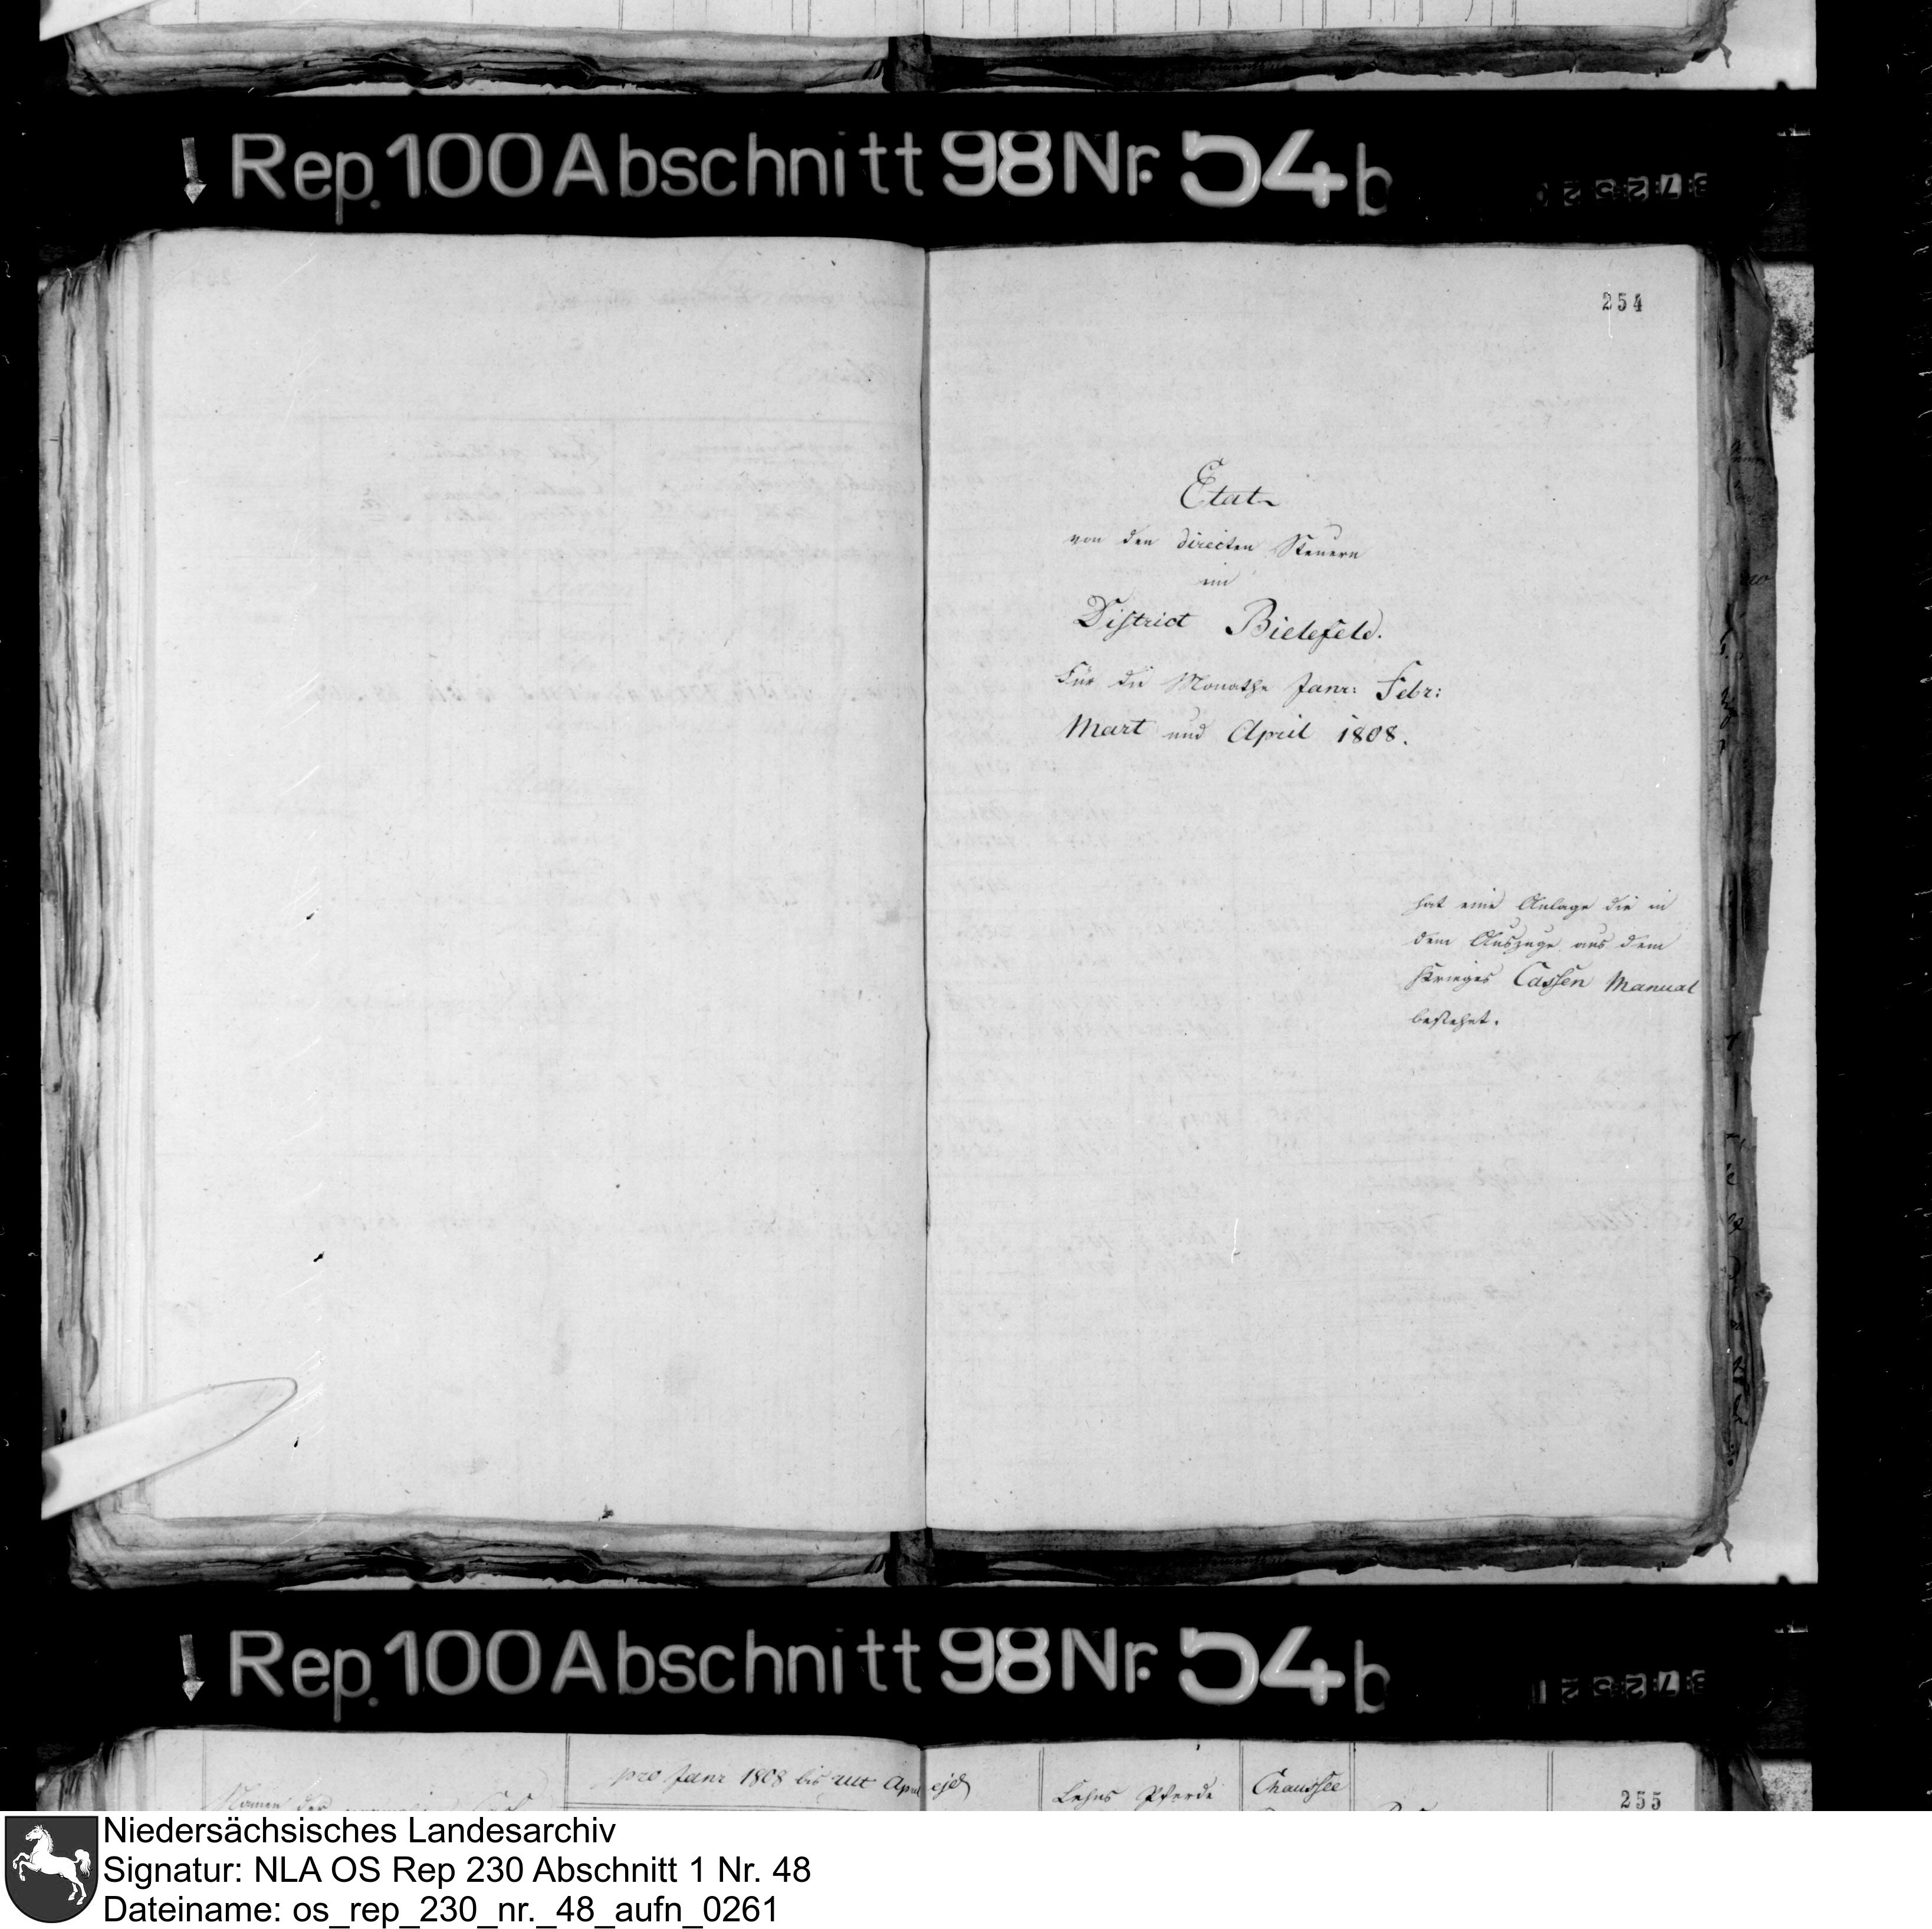 Rep. 100 Abschnitt 98 Nr. 54 b
254
Etat
von den directen Steuern
im
District Bielefeld.
für die Monathe Janr: Febr:
Mart und April 1808.
hat eine Anlage die in
dem Auszuge aus dem
Krieges Cassen Manual
bestehet.
Rep. 100 Abschnitt 98 Nr. 54 b
pro Janr 1808 bis ult April ejd
Namen der
Lehns Pferde
Chaussee
255
Niedersächsisches Landesarchiv
Signatur: NLA OS Rep 230 Abschnitt 1 Nr. 48
Dateiname: os_rep_230_nr._48_aufn_0261